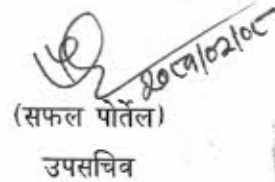 २०८१/०२/०८
(सफल पोर्तेल)
उपसचिव